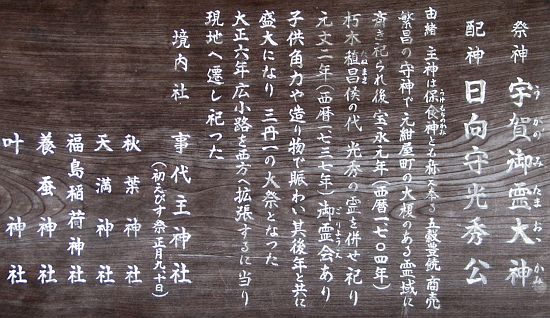 祭神 宇賀御霊大神
うかのみたまおゝかみ
配神 日向守光秀公
由緒 主神は保食神とも称え奉る 五穀豊饒 商売
うけもちのかみ
繁昌の守神で元紺屋町の大榎のある霊域に
斎き祀られ後宝永元年(西暦一七〇四年)
朽木植昌侯の代 光秀の霊を併せ祀り
たねまさ
元文二年(西暦一七三七年)御霊会あり
ごりょうえ
子供角力や造り物で賑わい其後年と共に
盛大になり 三丹一の大祭となった
大正六年広小路を西方に拡張するに当り
現地へ遷し祀つた
境内社 事代主神社
(初えびす祭 正月九、十日)
秋葉神社
天満神社
福島稲荷神社
養蚕神社
叶神社